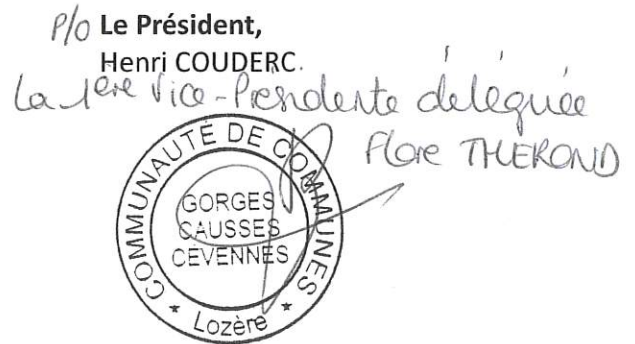 P/o Le Président,
Henri COUDERC.
La 1ère Vice-Présidente déléguée
Flore THEROND
COMMUNAUTÉ DE COMMUNES
GORGES
CAUSSES
CÉVENNES
* Lozère *